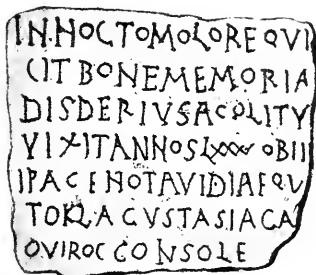 IN·HOCTOMOLOREQVI
CITBONEMEMORIA
DISDERIVSACOLITV
VIXITANNOSLXXXVOBII
IPACENOTAVIDIAEQV
TOKLACVSTASIACA
QVIROCCONSOLE